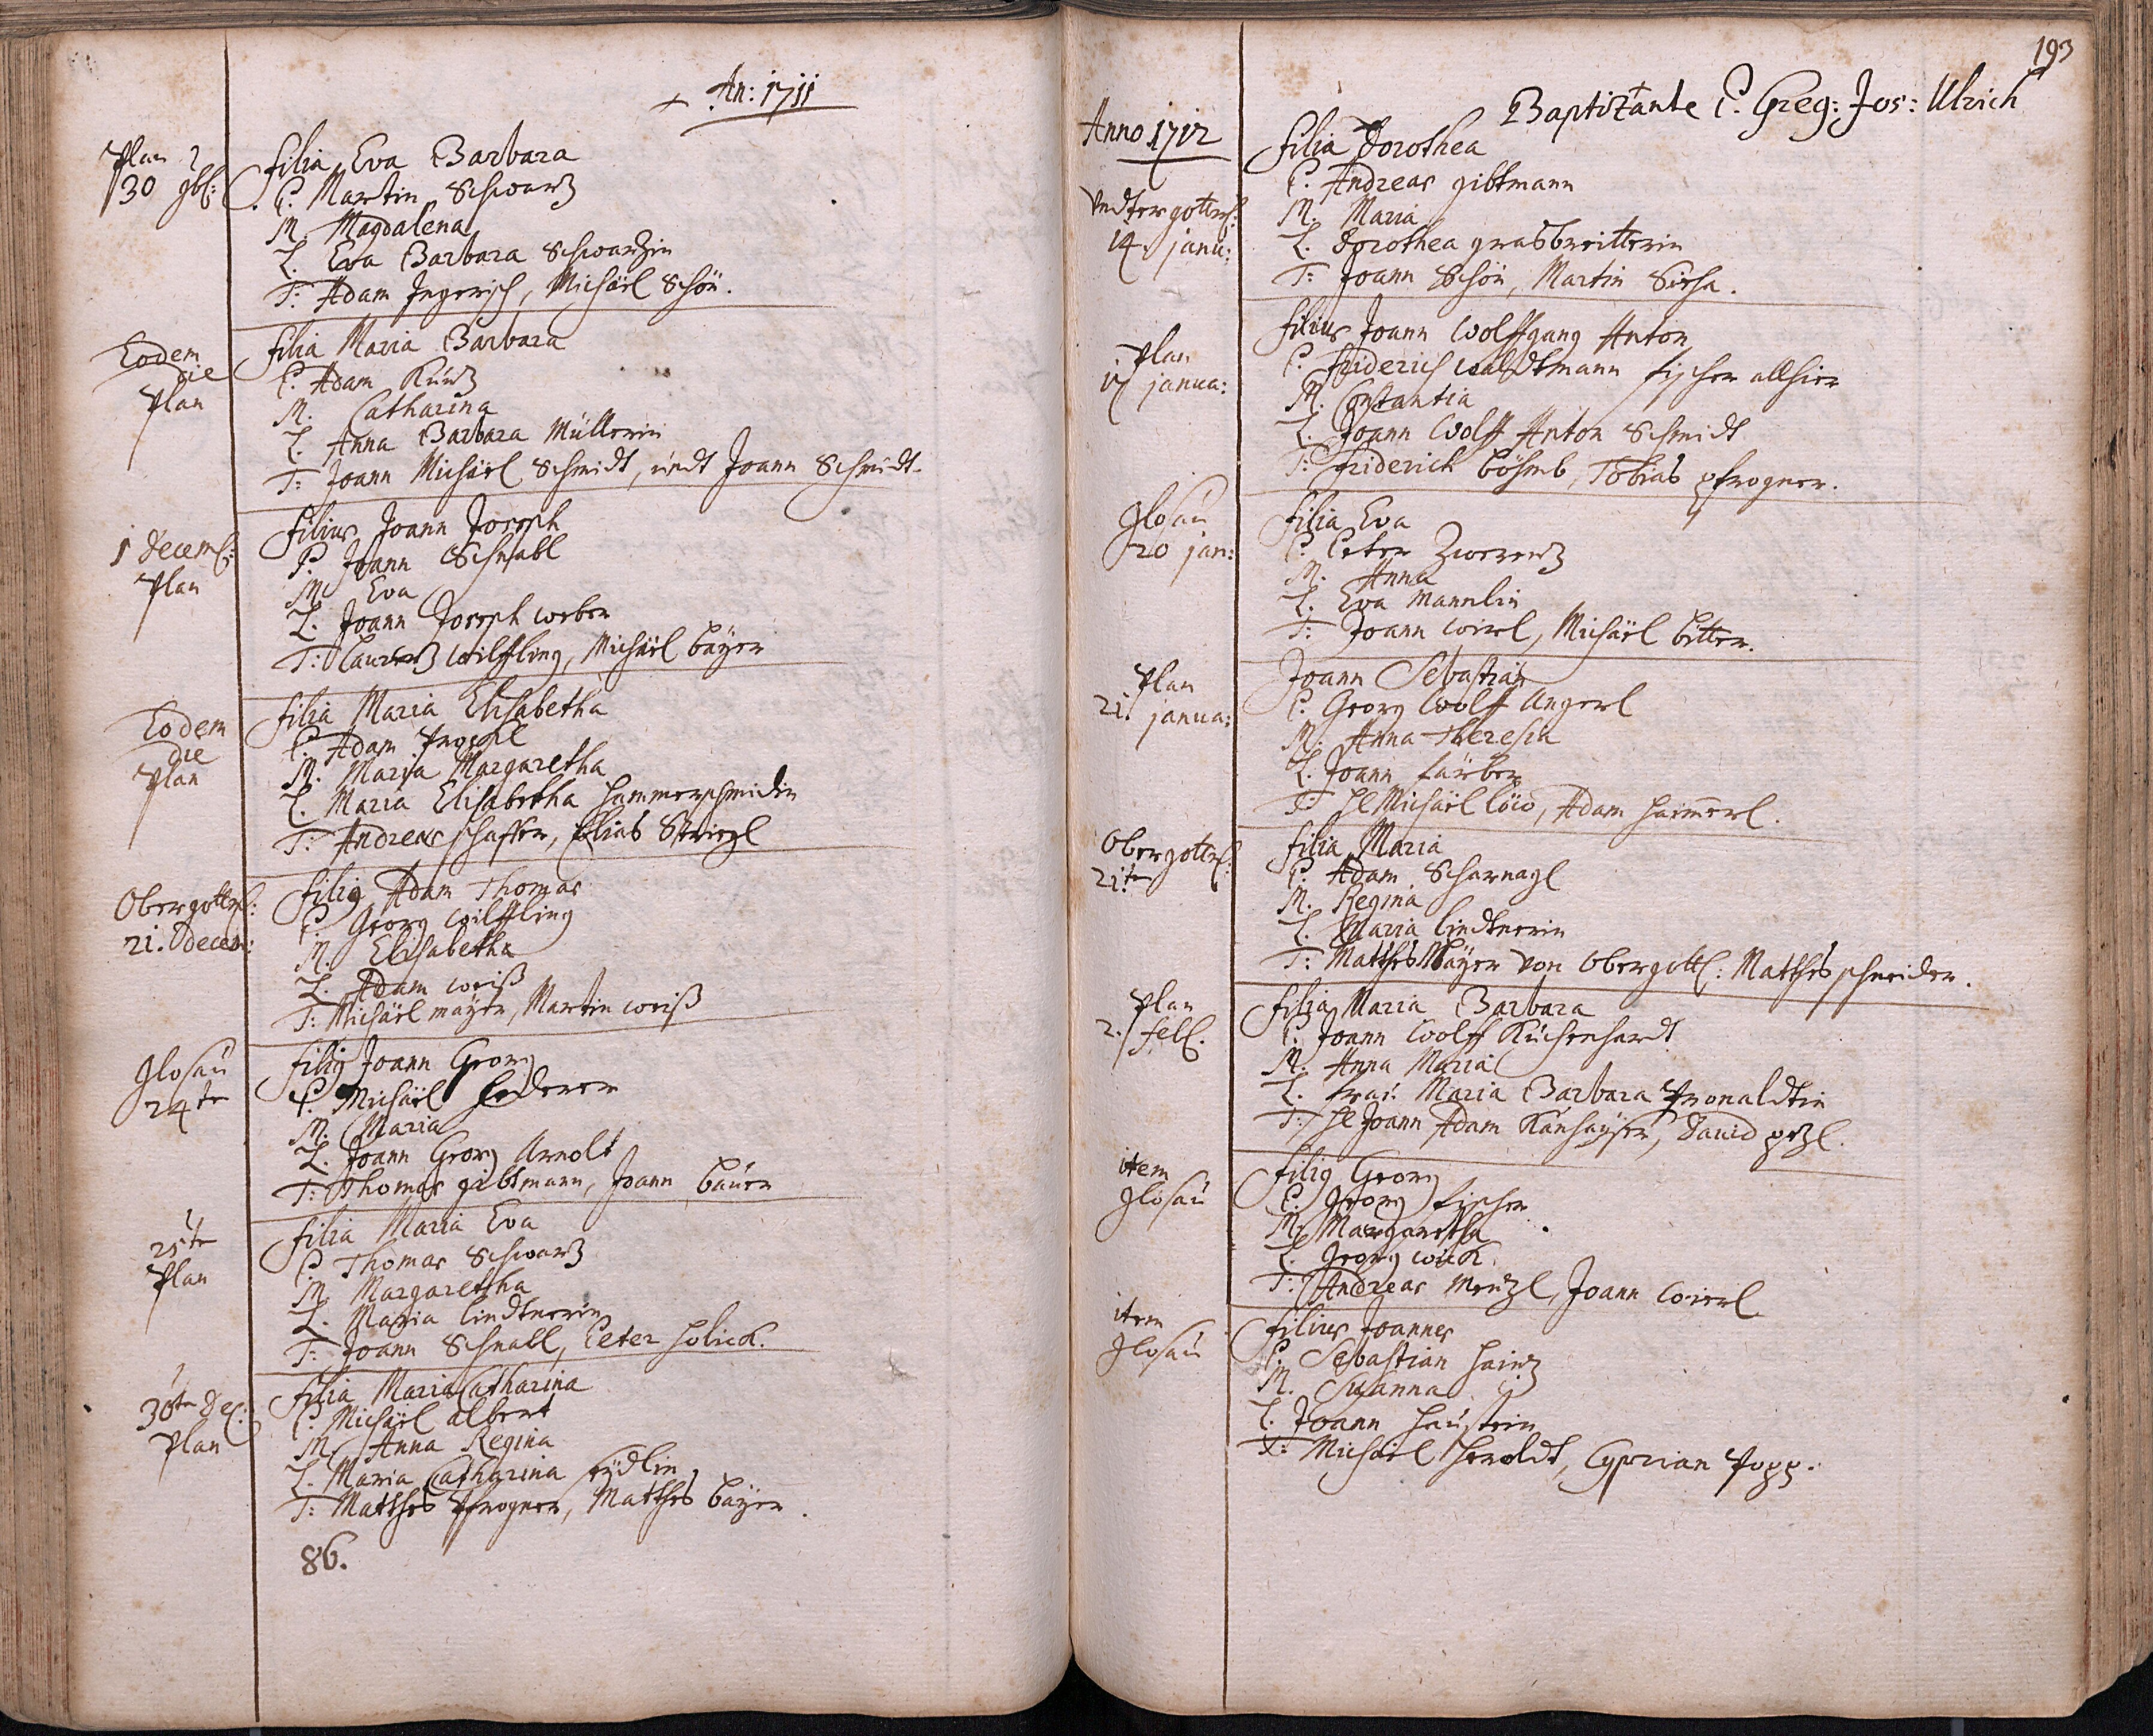 An: 1711
Plan
30 9b:
filia Eva Barbara
P. Martin Schwartz
M. Magdalena
L. Eva Barbara Schwartzin
T: Adam Ingrisch, Michäel Schön.
Eodem
die
Plan
filia Maria Barbara
P. Adam Küntz
M. Catharina
L. Anna Barbara Müllerin
T: Joann Michäel Schmidt, undt Joann Schmidt
1 decem:
Plan
filius Joann Joseph
P. Joann Schnabl
M. Eva
L. Joann Joseph weber
T: Laurentz Wilffling, Michäel bäyer
Eodem
die
Plan
filia Maria Elisabetha
P. Adam
M. Maria Margaretha
L. Maria Elisabetha hammerschmidin
T: Andreas schaffer, Elias Striegl
Obergottes:
21. decem:
filig Adam Thomas
P. Georg Wilffling
M. Elisabetha
L. Adam weiß
T: Michäel mayer, Martin weiß
Glosau
24te
filig Joann Georg
P. Michäel federer
M. Maria
L. Joann Georg Arnolt
T: Thomas gibtmann, Joann bauer
25te
Plan
filia Maria Eva
P. Thomas Schwartz
M. Margaretha
L. Maria lindtnerin
T: Joann Schnabl, Peter holick.
30te dec:
Plan
filia Maria Catharina
P. Michäel albert
M. Anna Regina
L. Maria Catharina
T: Matthes Pfrogner, Matthes bäyer.
86.
193
Baptizante P. Greg: Jos: Ulrich
Anno 1712
Undtergottes:
14. janu:
filia Dorothea
P. Andreas gibtmann
M. Maria
L. Dorothea grasbreitterin
T: Joann Schön, Martin Sicha.
Plan
17 janua:
filius Joann Wolffgang Anton
P. friderich waldtmann fischer allhier
M. Constantia
L. Joann Wolff Anton Schmidt
T: friderich böhmb, Tobias pfrogner.
Glosau
20 jan:
filia Eva
P. Peter Zwerentz
M. Anna
L. Eva Mannlin
T: Joann wierl, Michäel bitter.
Plan
21. janua:
Joann Sebastian
P. Georg Wolff Angerl
M. Anna Theresia
L. Joann färber
T: H Michäel löw, Adam haimerl.
Obergottes:
21.te
filia Maria
P. Adam Scharnagl
M. Regina
L. Maria lindtnerin
T: Matthes Mayer von Obergottes: Matthes schneider.
Plan
2. feb.
filia Maria Barbara
P. Joann Wolff Küchenhardt
M. Anna Maria
L. frau Maria Barbara Pronaldtin
T: H Joann Adam Känhäyser, David petzl.
item
Glosau
filig Georg
P. Georg fischer
M. Margaretha
L. Georg wick
T: Andreas Mentzl, Joann Wierl
item
Glosau
filius Joannes
P. Sebastian Haintz
M. Susanna
L. Joann Haustein
T: Michäel Heroldt, Cyprian Popp.